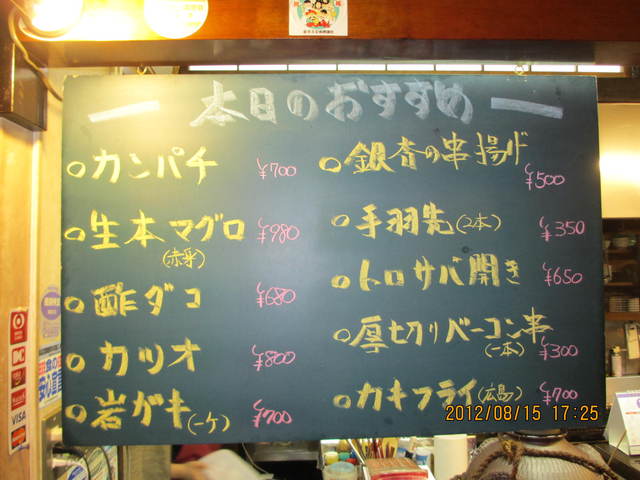 本日のおすすめ
○カンパチ ¥700
○生本マグロ ¥980
(赤身)
○酢ダコ ¥680
○カツオ ¥800
○岩ガキ(一ケ) ¥700
○銀杏の串揚げ
¥500
○手羽先(2本) ¥350
○トロサバ開き ¥650
○厚切りベーコン串
(一本) ¥300
○カキフライ(広島) ¥700
2012/08/15 17:25
VISA